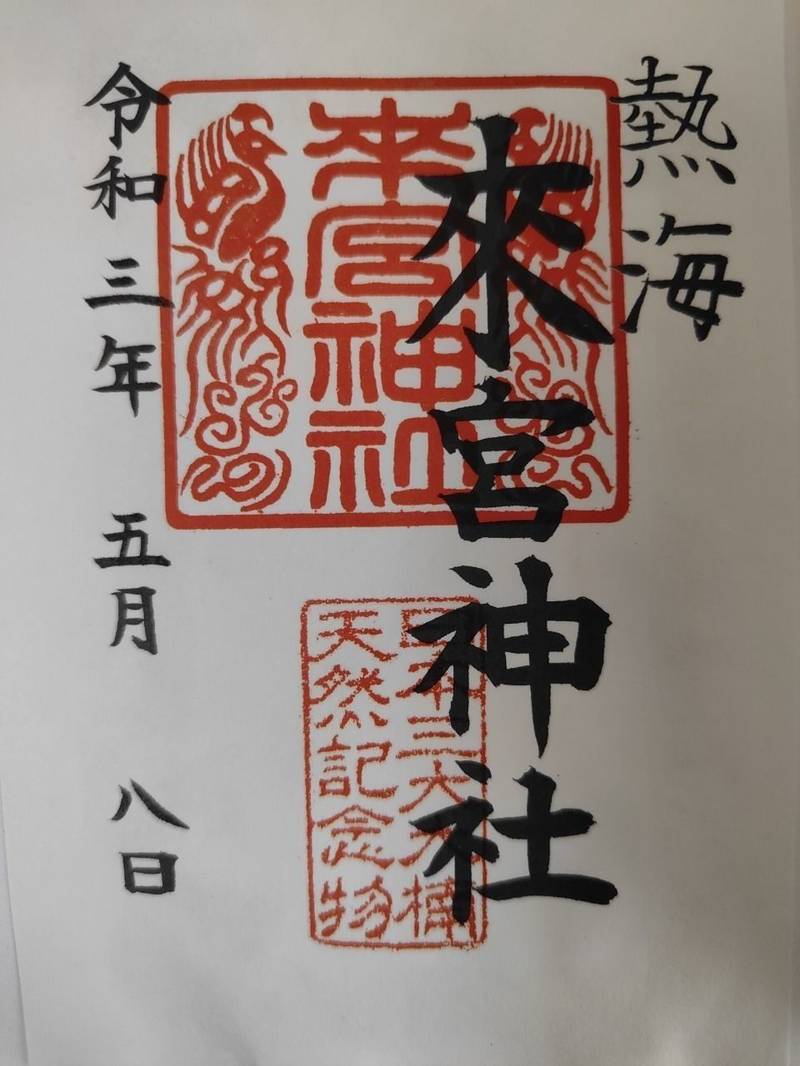 熱海
來宮神社
來宮神社
日本三大大楠
天然記念物
令和三年 五月 八日